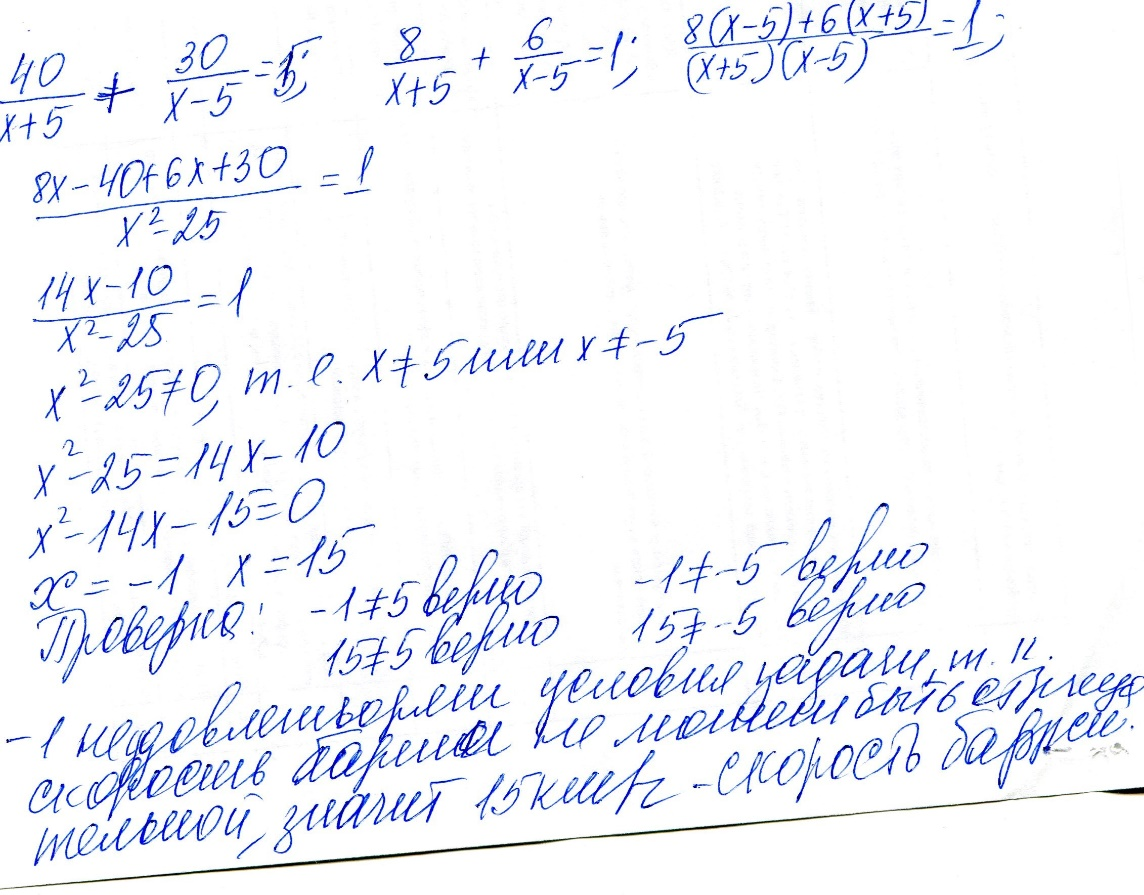 40/(x+5) + 30/(x-5) = 5; 8/(x+5) + 6/(x-5) = 1; (8(x-5)+6(x+5))/((x+5)(x-5)) = 1;
(8x-40+6x+30)/(x²-25) = 1
(14x-10)/(x²-25) = 1
x²-25≠0, т. е. x≠5 или x≠-5
x²-25=14x-10
x²-14x-15=0
x=-1 x=15
Проверка: -1≠5 верно -1≠-5 верно
15≠5 верно 15≠-5 верно
-1 условия задачи, т. к.
скорость баржи не может быть отрица
тельной, значит 15 км/ч - скорость баржи.